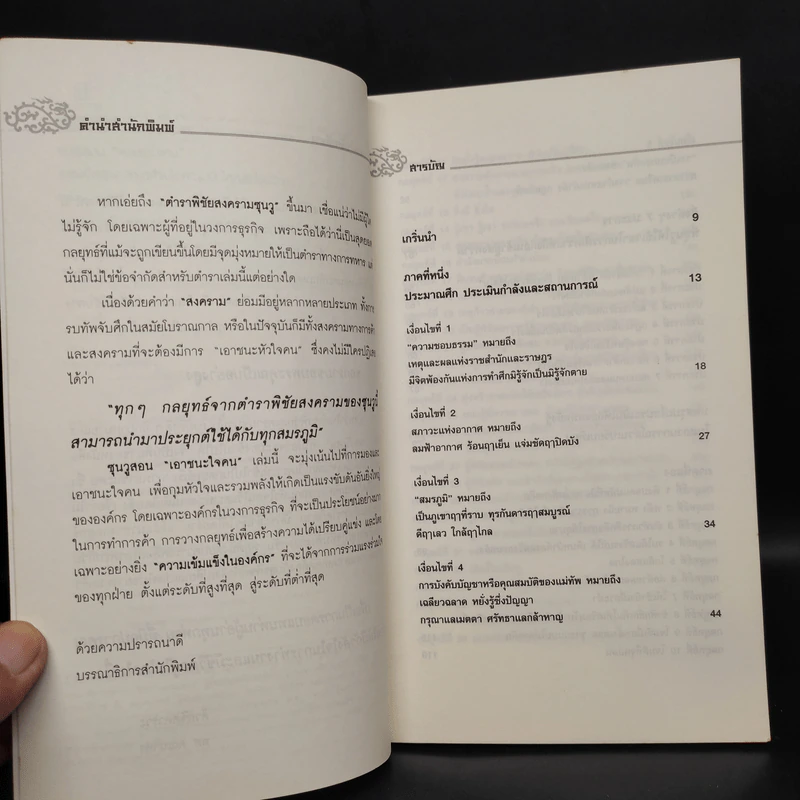 คำนำสำนักพิมพ์
หากเอ่ยถึง "ตำราพิชัยสงครามซุนวู" ขึ้นมา เชื่อแน่ว่าไม่มีผู้ใด
ไม่รู้จัก โดยเฉพาะผู้ที่อยู่ในวงการธุรกิจ เพราะถือได้ว่านี่เป็นสุดยอด
กลยุทธ์ที่แม้จะถูกเขียนขึ้นโดยมีจุดมุ่งหมายให้เป็นตำราทางการทหาร แต่
นั่นก็ไม่ใช่ข้อจำกัดสำหรับตำราเล่มนี้แต่อย่างใด
เนื่องด้วยคำว่า "สงคราม" ย่อมมีอยู่หลากหลายประเภท ทั้งการ
รบทัพจับศึกในสมัยโบราณกาล หรือในปัจจุบันก็มีทั้งสงครามทางการค้า
และสงครามที่จะต้องมีการ "เอาชนะหัวใจคน" ซึ่งคงไม่มีใครปฏิเสธ
ได้ว่า
"ทุกๆ กลยุทธ์จากตำราพิชัยสงครามของซุนวูนี้
สามารถนำมาประยุกต์ใช้ได้กับทุกสมรภูมิ"
ซุนวูสอน "เอาชนะใจคน" เล่มนี้ จะมุ่งเน้นไปที่การมองและ
เอาชนะใจคน เพื่อกุมหัวใจและรวมพลังให้เกิดเป็นแรงขับดันอันยิ่งใหญ่
ขององค์กร โดยเฉพาะองค์กรในวงการธุรกิจ ที่จะเป็นประโยชน์อย่างมาก
ในการทำการค้า การวางกลยุทธ์เพื่อสร้างความได้เปรียบคู่แข่ง และโดย
เฉพาะอย่างยิ่ง "ความเข้มแข็งในองค์กร" ที่จะได้จากการร่วมแรงร่วมใจ
ของทุกฝ่าย ตั้งแต่ระดับที่สูงที่สุด สู่ระดับที่ต่ำที่สุด
ด้วยความปรารถนาดี
บรรณาธิการสำนักพิมพ์
สารบัญ
เกริ่นนำ 9
ภาคที่หนึ่ง
ประมาณศึก ประเมินกำลังและสถานการณ์ 13
เงื่อนไขที่ 1
"ความชอบธรรม" หมายถึง
เหตุและผลแห่งราชสำนักและราษฎร
มีจิตพ้องกันแห่งการทำศึกมิรู้จักเป็นมิรู้จักตาย 18
เงื่อนไขที่ 2
สภาวะแห่งอากาศ หมายถึง
ลมฟ้าอากาศ ร้อนฤๅเย็น แจ่มชัดฤๅปิดบัง 27
เงื่อนไขที่ 3
"สมรภูมิ" หมายถึง
เป็นภูเขาฤๅที่ราบ ทุรกันดารฤๅสมบูรณ์
ดีฤๅเลว ใกล้ฤๅไกล 34
เงื่อนไขที่ 4
การบังคับบัญชาหรือคุณสมบัติของแม่ทัพ หมายถึง
เฉลียวฉลาด หยั่งรู้ซึ่งปัญญา
กรุณาแลเมตตา ศรัทธาแลกล้าหาญ 44